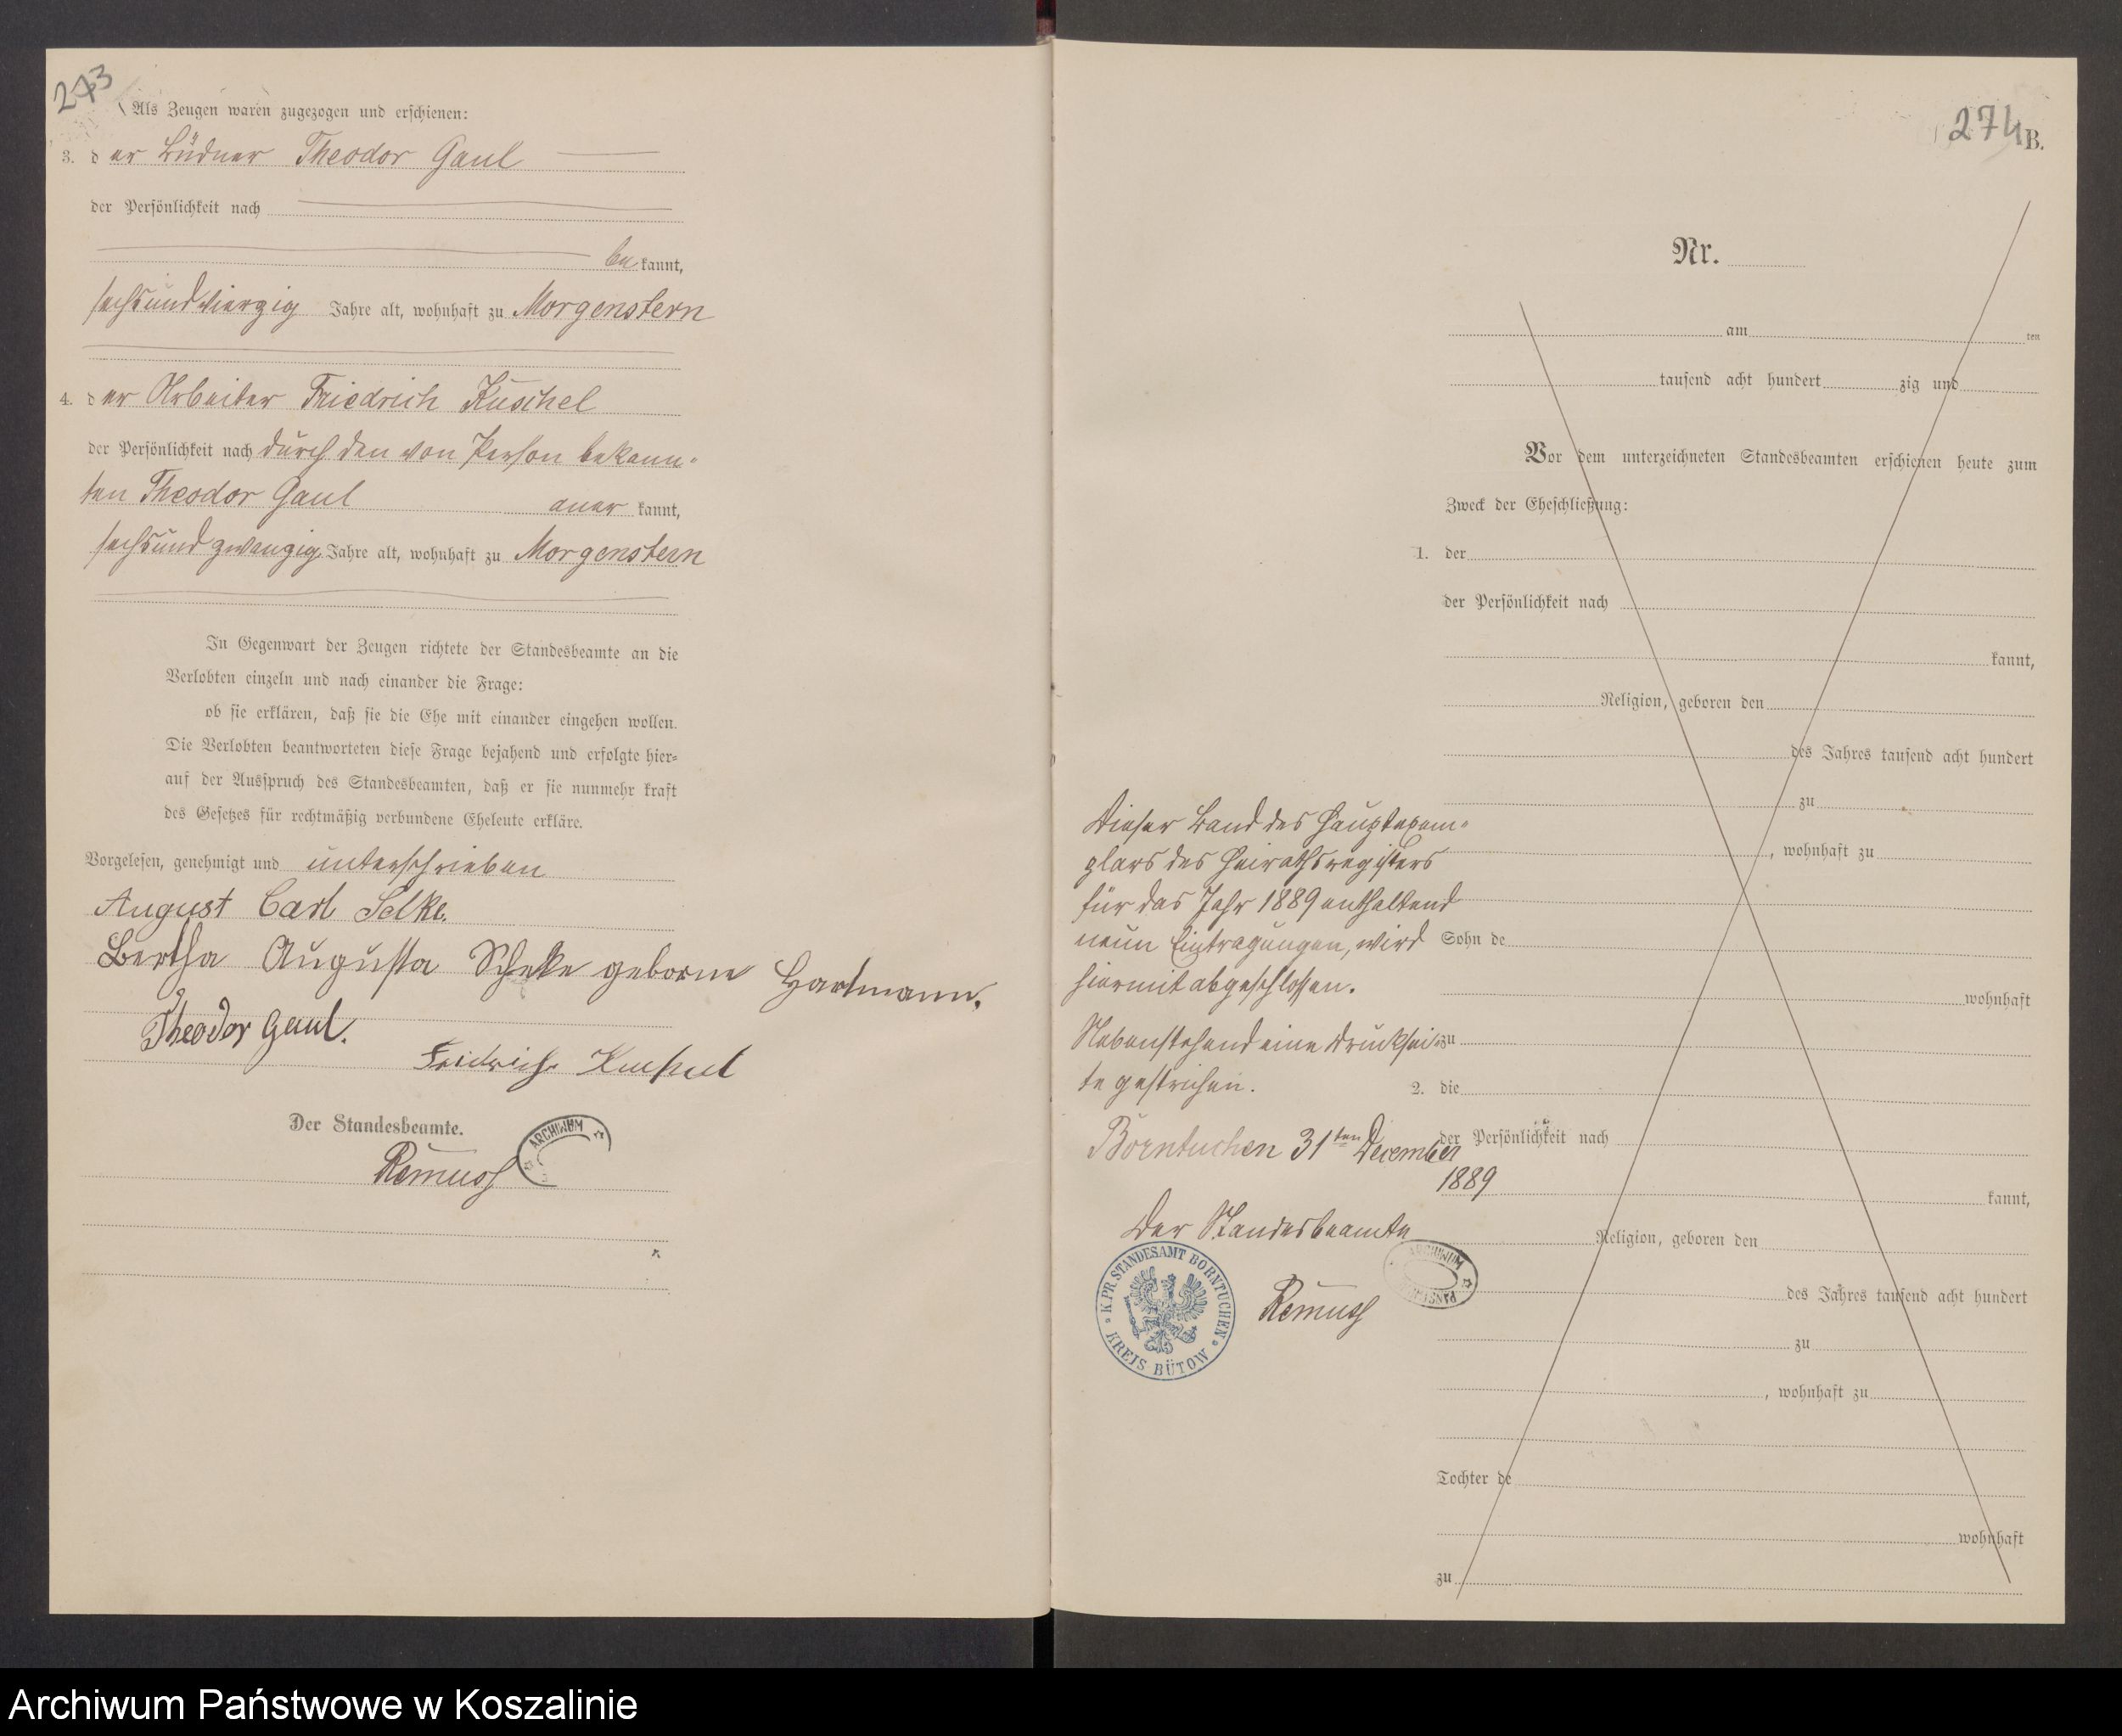 273
Als Zeugen waren zugezogen und erschienen:
3. der Büdner Theodor Gaul
der Persönlichkeit nach
bekannt,
sechsundvierzig Jahre alt, wohnhaft zu Morgenstern
4. der Arbeiter Friedrich Kuschel
der Persönlichkeit nach durch den von Person bekann-
ten Theodor Gaul anerkannt,
sechsundzwanzig Jahre alt, wohnhaft zu Morgenstern
In Gegenwart der Zeugen richtete der Standesbeamte an die
Verlobten einzeln und nach einander die Frage:
ob sie erklären, daß sie die Ehe mit einander eingehen wollen.
Die Verlobten beantworteten diese Frage bejahend und erfolgte hier-
auf der Ausspruch des Standesbeamten, daß er sie nunmehr kraft
des Gesetzes für rechtmäßig verbundene Eheleute erkläre.
Vorgelesen, genehmigt und unterschrieben
August Carl Selke.
Bertha Augusta geborne Hartmann.
Theodor Gaul.
Friedrich Kuschel
Der Standesbeamte.
Remuss
ARCHIWUM
274
B.
Nr.
am ten
tausend acht hundert zig und
Vor dem unterzeichneten Standesbeamten erschienen heute zum
Zweck der Eheschließung:
1. der
der Persönlichkeit nach
kannt,
Religion, geboren den
des Jahres tausend acht hundert
zu
, wohnhaft zu
Sohn de
wohnhaft
zu
2. die
der Persönlichkeit nach
kannt,
Religion, geboren den
des Jahres tausend acht hundert
zu
, wohnhaft zu
Tochter de
wohnhaft
zu
Dieser Band des Hauptexem-
plars des Heirathsregisters
für das Jahr 1889 enthaltend
neun Eintragungen, wird
hiermit abgeschlossen.
Nebenstehend eine Drucksei-
te gestrichen.
Borntuchen 31ten December
1889
Der Standesbeamte
Remuss
K. PR. STANDESAMT BORNTUCHEN
KREIS BÜTOW
ARCHIWUM
Archiwum Państwowe w Koszalinie